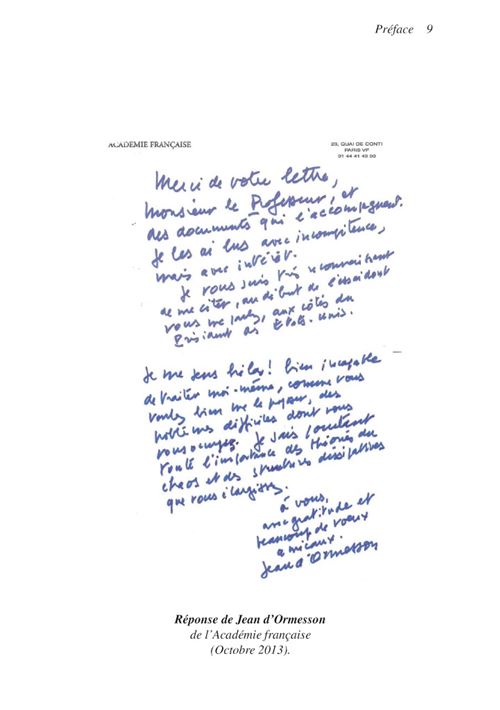 Préface 9
ACADEMIE FRANÇAISE
23, QUAI DE CONTI
PARIS VIe
01 44 41 43 00
Merci de votre lettre,
Monsieur le Professeur, et
des documents qui l'accompagnent.
Je les ai lus avec incompétence,
mais avec intérêt.
Je vous suis très reconnaissant
de me citer, au début de
vous me, aux côtés du
Président des États-Unis.
Je me sens hélas! bien incapable
de traiter moi-même, comme vous
voulez bien me le, des
problèmes difficiles dont vous
vous occupez. Je sais pourtant
toute l'importance des théories du
chaos et des structures dissipatives
que vous
à vous,
avec gratitude et
beaucoup de vœux
amicaux.
Jean d'Ormesson
Réponse de Jean d'Ormesson
de l'Académie française
(Octobre 2013).